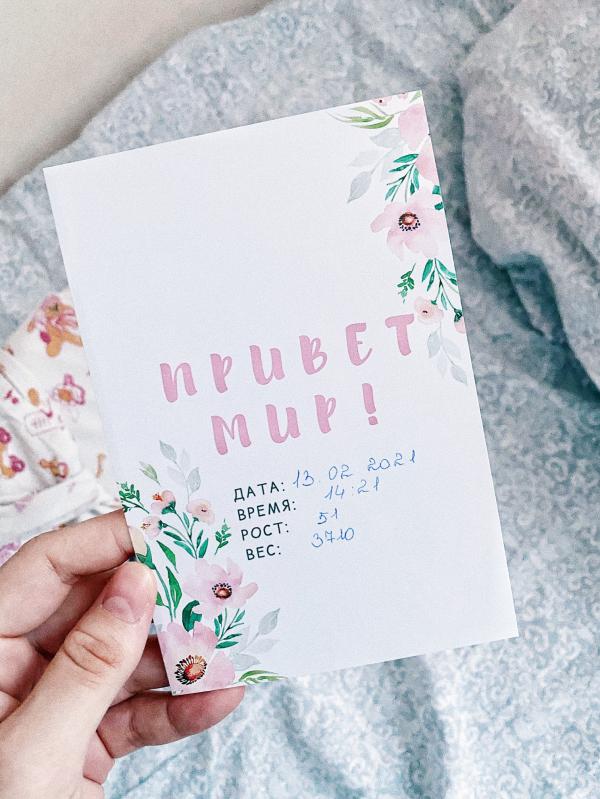 ПРИВЕТ
МИР!
ДАТА: 13.02 2021
ВРЕМЯ: 14:21
РОСТ: 51
ВЕС: 3710